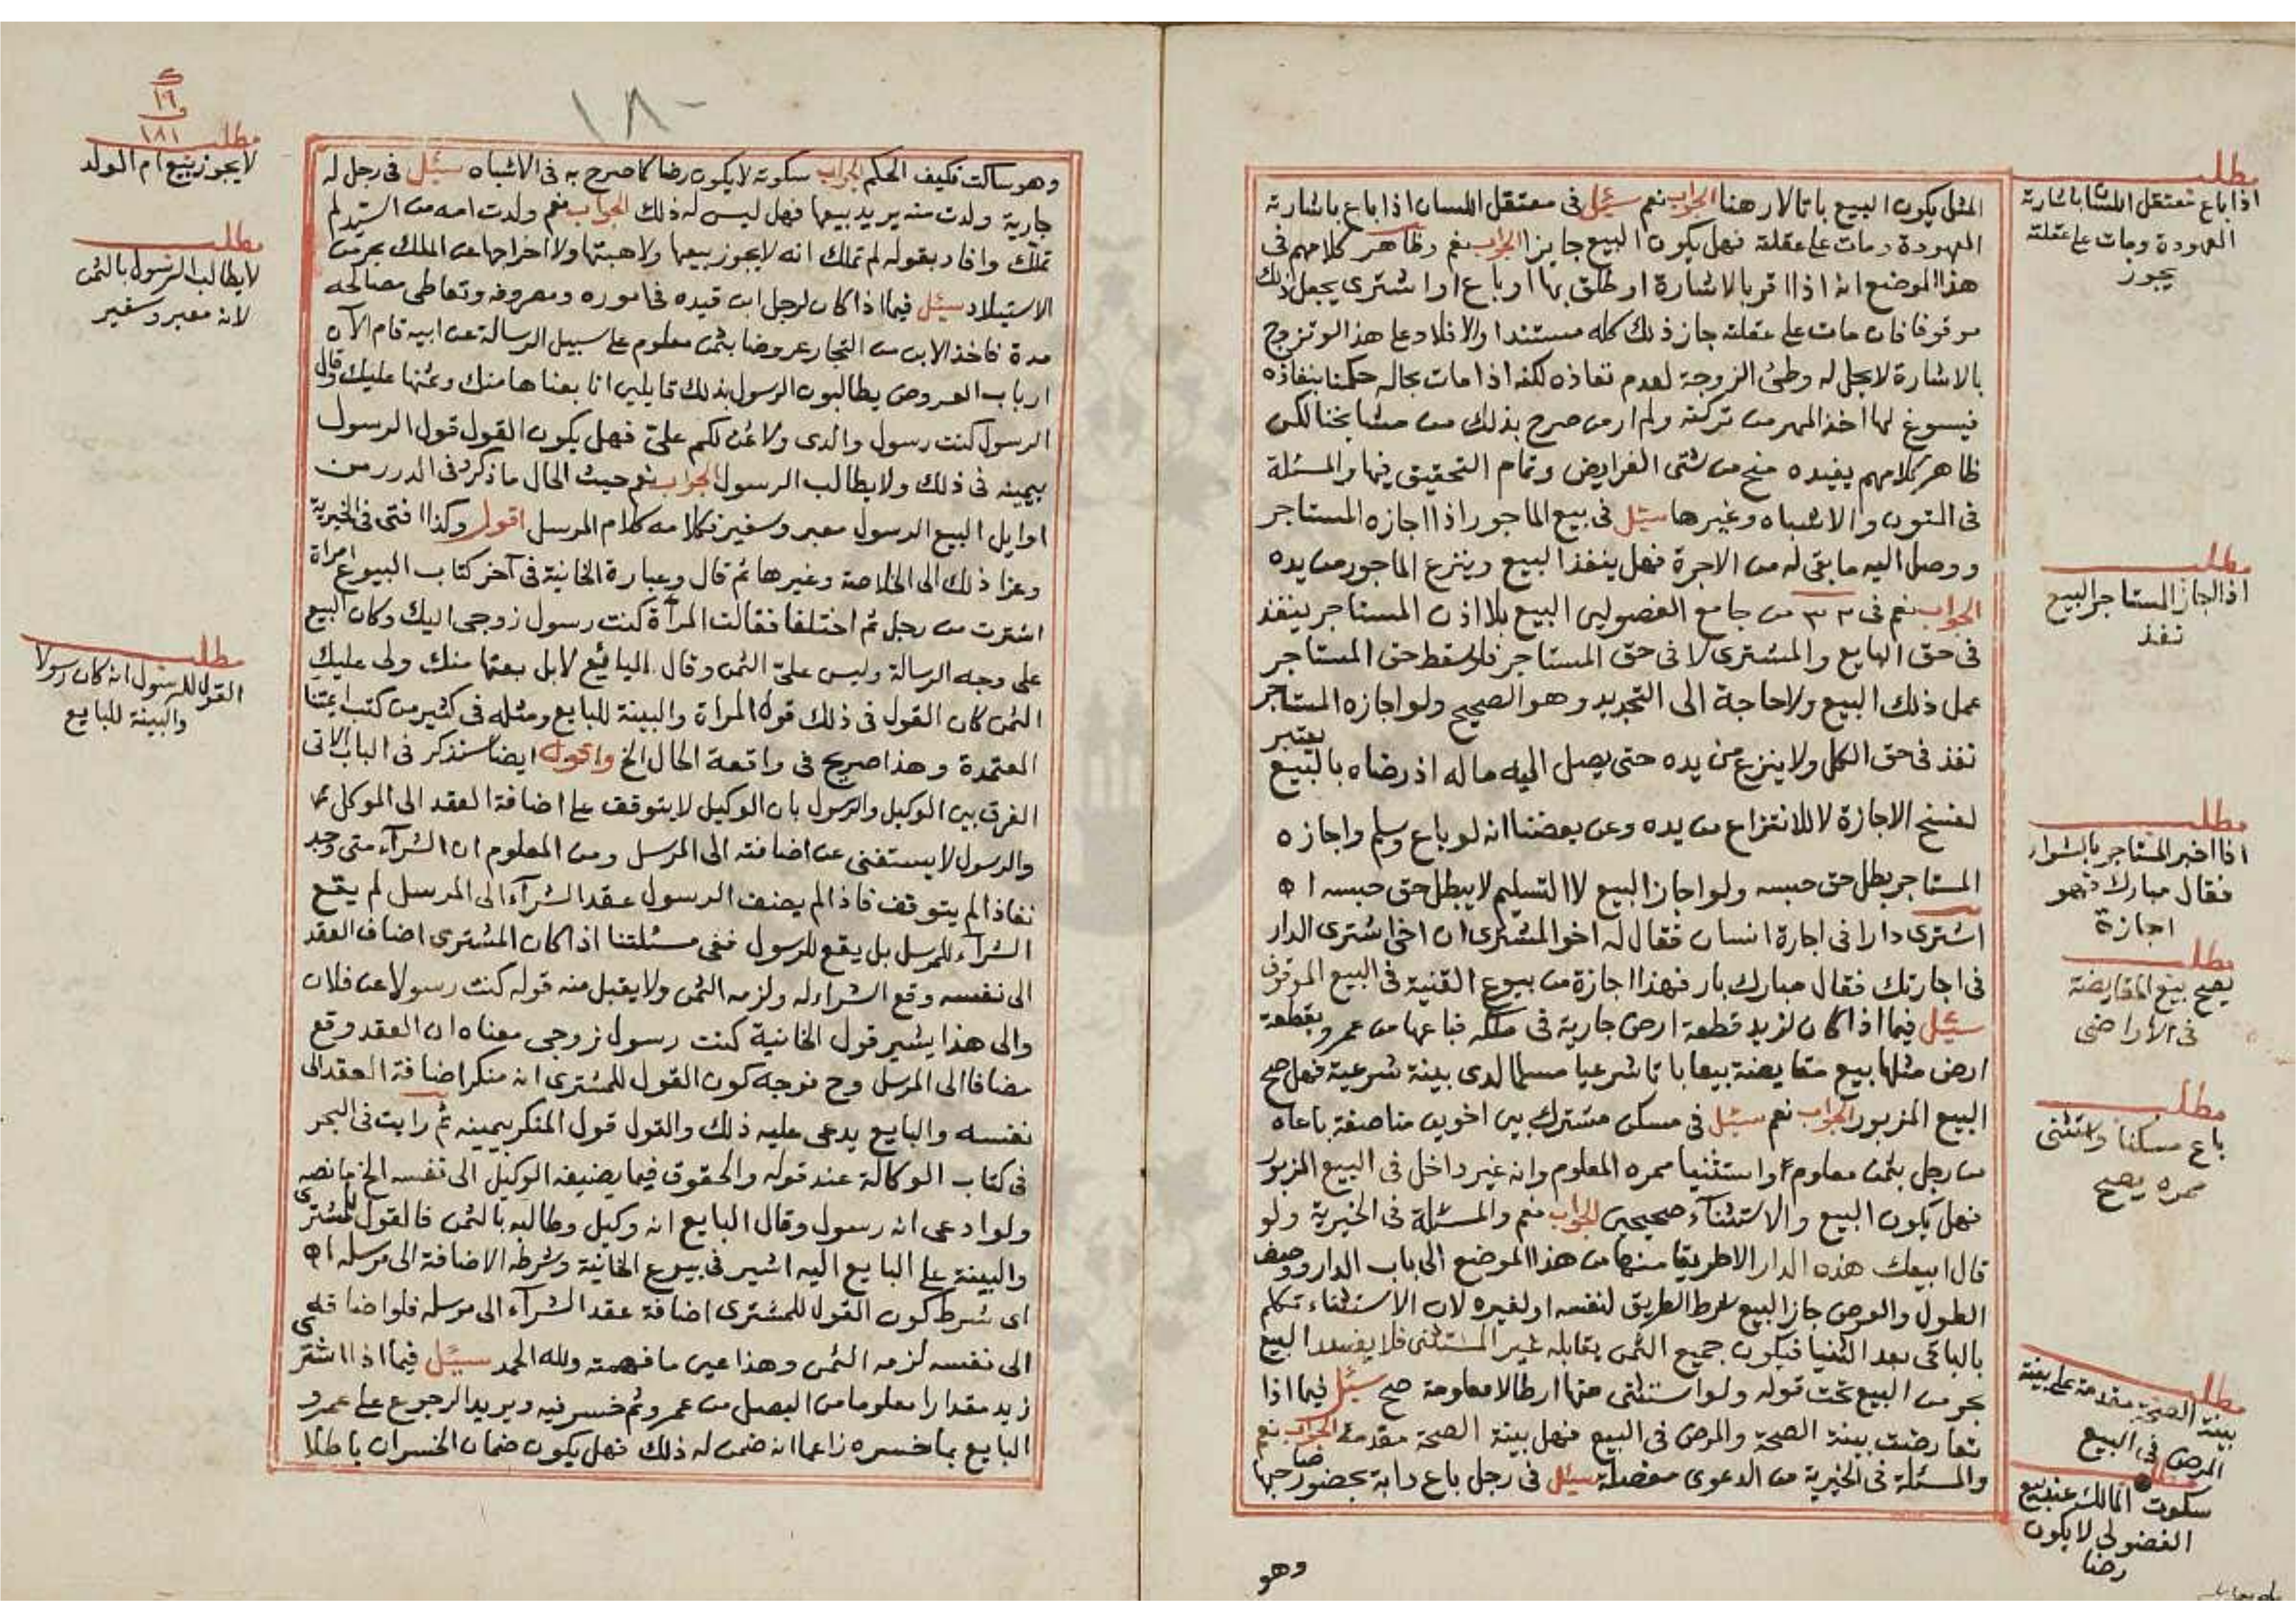 المثل يكون البيع باتا لا رهنا الجواب نعم سئل في معتقل اللسان اذا باع باشارته
المعهودة ومات على عقلته فهل يكون البيع جايزا الجواب نعم وظاهر كلامهم في
هذا الموضع انه اذا اقر بالاشارة او طلق بها او باع او اشترى يجعل ذلك
موقوفا فان مات على عقلته جاز ذلك كله مستندا والا فلا وعلى هذا لو تزوج
بالاشارة لا يحل له وطئ الزوجة لعدم نفاذه لكنه اذا مات بحاله حكمنا بنفاذه
فيسوغ لها اخذ المهر من تركته ولم ار من صرح بذلك من مشايخنا لكن
ظاهر كلامهم يفيده منح من شتى الفرايض وتمام التحقيق فيها والمسئلة
في المتون والاشباه وغيرها سئل في بيع الماجور اذا اجازه المستاجر
ووصل اليه ما بقى له من الاجرة فهل ينفذ البيع وينزع الماجور من يده
الجواب نعم في ٣٢ من جامع الفصولين البيع بلا اذن المستاجر ينفذ
في حق البايع والمشترى لا في حق المستاجر فلو سقط حق المستاجر
عمل ذلك البيع ولا حاجة الى التجديد وهو الصحيح ولو اجازه المستاجر
نفذ في حق الكل ولا ينزع من يده حتى يصل اليه ماله اذ رضاه بالبيع يعتبر
لفسخ الاجازة لا للانتزاع من يده وعن بعضنا انه لو باع وسلم واجازه
المستاجر بطل حق حبسه ولو اجاز البيع لا التسليم لا يبطل حق حبسه اه
اشترى دارا في اجارة انسان فقال له اخو المشترى ان اخى اشترى الدار
في اجارتك فقال مبارك بار فهذا اجازة من بيوع القنية في البيع الموقوف
سئل فيما اذا كان لزيد قطعة ارض جارية في ملكه فباعها من عمرو بقطعة
ارض مثلها بيع مقايضة بيعا باتا شرعيا مسلما لدى بينة شرعية فهل صح
البيع المزبور الجواب نعم سئل في مسكن مشترك بين اخوين مناصفة باعاه
من رجل بثمن معلوم واستثنيا ممره المعلوم وانه غير داخل في البيع المزبور
فهل يكون البيع والاستثناء صحيحين الجواب نعم والمسئلة في الخيرية ولو
قال ابيعك هذه الدار الا طريقا منها من هذا الموضع الى باب الدار ووصف
الطول والعرض جاز البيع بشرط الطريق لنفسه او لغيره لان الاستثناء تكلم
بالباقى بعد الثنيا فيكون جميع الثمن يقابله غير المستثنى فلا يفسد البيع
بحر من البيع تحت قوله ولو استثنى منها ارطالا معلومة صح سئل فيما اذا
تعارضت بينة الصحة والمرض في البيع فهل بينة الصحة مقدمة الجواب نعم
والمسئلة في الخيرية من الدعوى مفصلة سئل في رجل باع دابة بحضور صاحبها
وهو
مطلب
اذا باع معتقل اللسان باشارته
المعهودة ومات على عقلته
يجوز
مطلب
اذا اجاز المستاجر البيع
نفذ
مطلب
اذا اخبر المستاجر بالشراء
فقال مبارك فهو
اجازة
مطلب
يصح بيع المقايضة
في الاراضى
مطلب
باع مسكنا واستثنى
ممره يصح
مطلب
بينة الصحة مقدمة على بينة
المرض في البيع
سكوت المالك عند بيع
الفضولي لا يكون
رضا
١٨٠
وهو ساكت فكيف الحكم الجواب سكوته لا يكون رضا كما صرح به في الاشباه سئل في رجل له
جارية ولدت منه يريد بيعها فهل ليس له ذلك الجواب نعم ولدت امة من السيد لم
تملك وافاد بقوله لم تملك انه لا يجوز بيعها ولا هبتها ولا اخراجها عن الملك بحر من
الاستيلاد سئل فيما اذا كان لرجل ابن قيده في اموره ومصروفه وتعاطى مصالحه
مدة فاخذ الابن من التجار عروضا بثمن معلوم على سبيل الرسالة عن ابيه قام الآن
ارباب العروض يطالبون الرسول بذلك قايلين انا بعناها منك وثمنها عليك وقال
الرسول كنت رسول والدى ولا ثمن لكم علىّ فهل يكون القول قول الرسول
بيمينه في ذلك ولا يطالب الرسول الجواب نعم حيث الحال ما ذكر وفي الدرر من
اوايل البيع الرسول معبر وسفير فكلامه كلام المرسل اقول وكذا افتى في الخيرية
وعزا ذلك الى الخلاصة وغيرها ثم قال وعبارة الخانية في آخر كتاب البيوع امراة
اشترت من رجل ثم اختلفا فقالت المرأة كنت رسول زوجى اليك وكان البيع
على وجه الرسالة وليس علىّ الثمن وقال البايع لا بل بعتها منك ولى عليك
الثمن كان القول في ذلك قول المراة والبينة للبايع ومثله في كثير من كتب ائمتنا
المعتمدة وهذا صريح في واقعة الحال الخ واقول ايضا سنذكر في الباب الاتى
الفرق بين الوكيل والرسول بان الوكيل لا يتوقف على اضافة العقد الى الموكل
والرسول لا يستغنى عن اضافته الى المرسل ومن المعلوم ان الشرآء متى وجد
نفاذا لم يتوقف فاذا لم يضف الرسول عقد الشرآء الى المرسل لم يقع
الشرآء للمرسل بل يقع للرسول ففى مسئلتنا اذا كان المشترى اضاف العقد
الى نفسه وقع الشراء له ولزمه الثمن ولا يقبل منه قوله كنت رسولا عن فلان
والى هذا يشير قول الخانية كنت رسول زوجى معناه ان العقد وقع
مضافا الى المرسل وح فوجه كون القول للمشترى انه منكر اضافة العقد الى
نفسه والبايع يدعى عليه ذلك والقول قول المنكر بيمينه ثم رايت في البحر
في كتاب الوكالة عند قوله والحقوق فيما يضيفه الوكيل الى نفسه الخ ما نصه
ولو ادعى انه رسول وقال البايع انه وكيل وطالبه بالثمن فالقول للمشترى
والبينة على البايع اليه اشير في بيوع الخانية وشرطه الاضافة الى مرسله اه
اى شرط كون القول للمشترى اضافة عقد الشرآء الى مرسله فلو اضافه
الى نفسه لزمه الثمن وهذا عين ما فهمته ولله الحمد سئل فيما اذا اشترى
زيد مقدارا معلوما من البصل من عمرو ثم خسر فيه ويريد الرجوع على عمرو
البايع بما خسره زاعما انه ضمن له ذلك فهل يكون ضمان الخسران باطلا
١٩
١٨١
مطلب
لا يجوز بيع ام الولد
مطلب
لا يطالب الرسول بالثمن
لانه معبر وسفير
مطلب
القول للرسول انه كان رسولا
والبينة للبايع